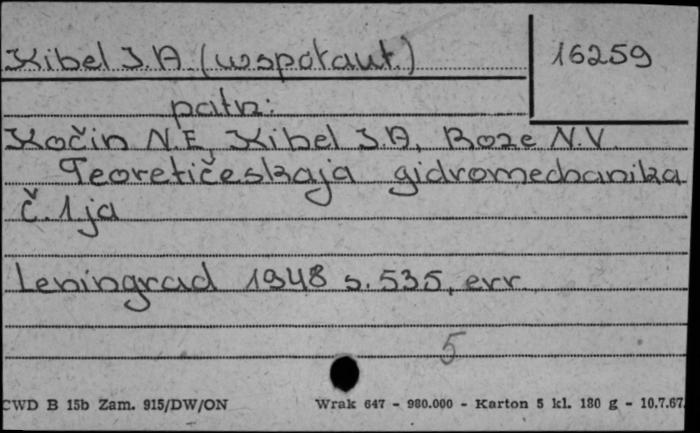 Kibel J.A. (współaut.)
16259
patrz:
Kočin N.E, Kibel J.A, Roze N.V.
Teoretičeskaja gidromechanika
č. 1ja
Leningrad 1948 s. 535, err.
5
CWD B 15b Zam. 915/DW/ON Wrak 647 - 980.000 - Karton 5 kl. 180 g - 10.7.67.